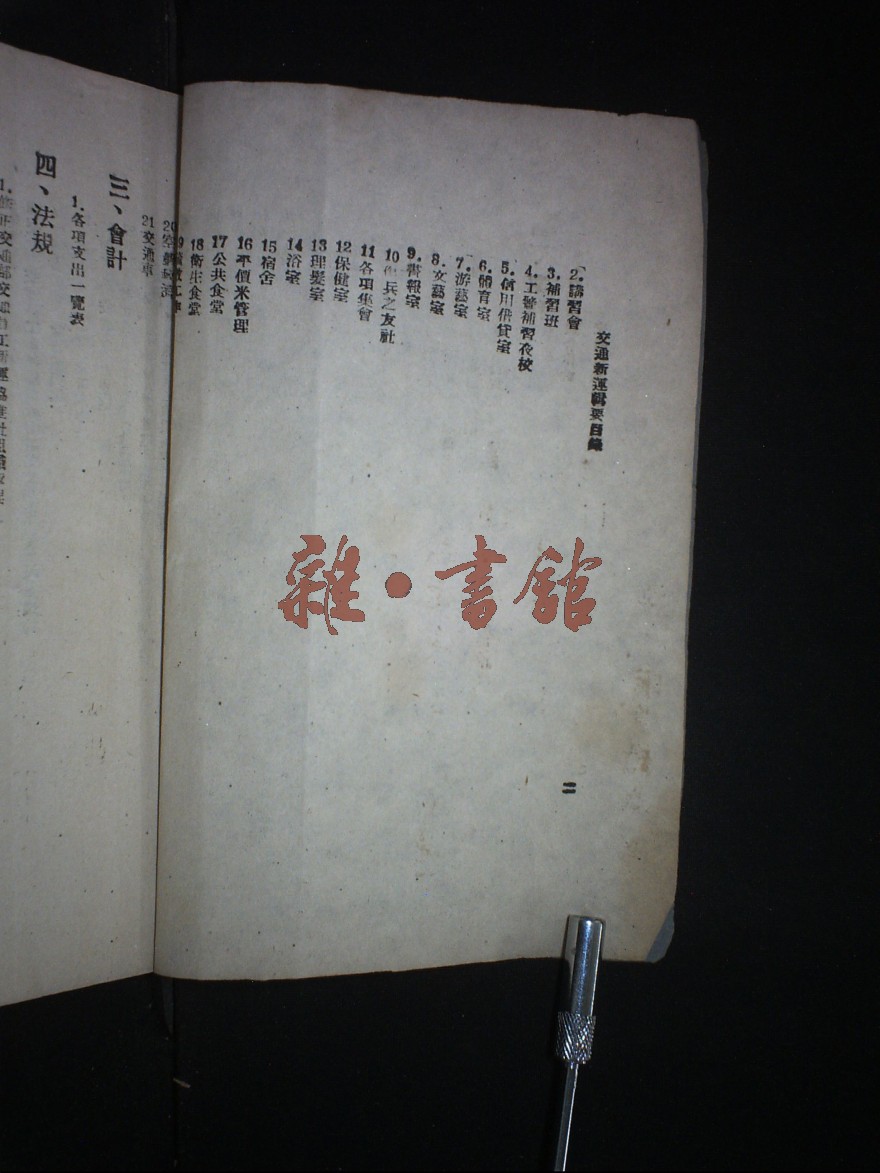 交通新運輯要目錄
2.講習會
3.補習班
4.工警補習夜校
5.信用借貸室
6.體育室
7.游藝室
8.文藝室
9.書報室
10傷兵之友社
11各項集會
12保健室
13理髮室
14浴室
15宿舍
16平價米管理
17公共食堂
18衛生食堂
20空襲
21交通車
二
三、會計
1.各項支出一覽表
四、法規
1.修正交通部交通員工新運
雜•書館